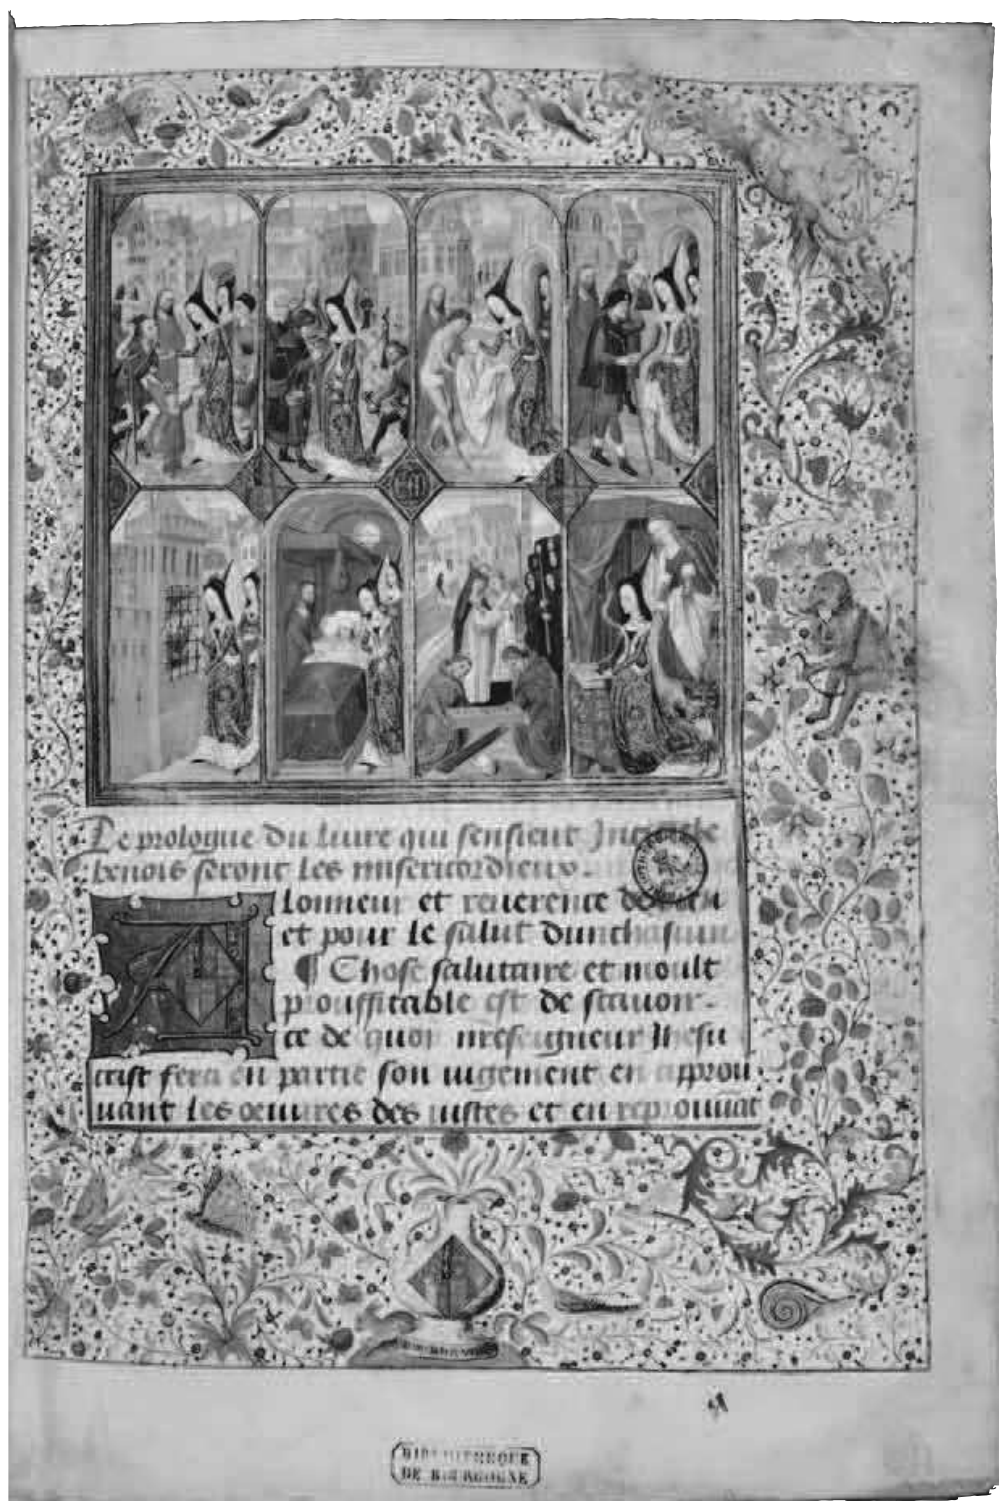 Le prologue du liure qui sensieut
benois seront les misericordieux.
A lonneur et reuerence de dieu
et pour le salut dunchascun
¶ Chose salutaire et moult
prouffitable est de scauoir.
ce de quoy nr̃eseigneur Jhesu
crist fera en partie son iugement en approu
uant les oeuures des iustes et en reprouuãt
BIBLIOTHEQUE
DE BOURGOGNE